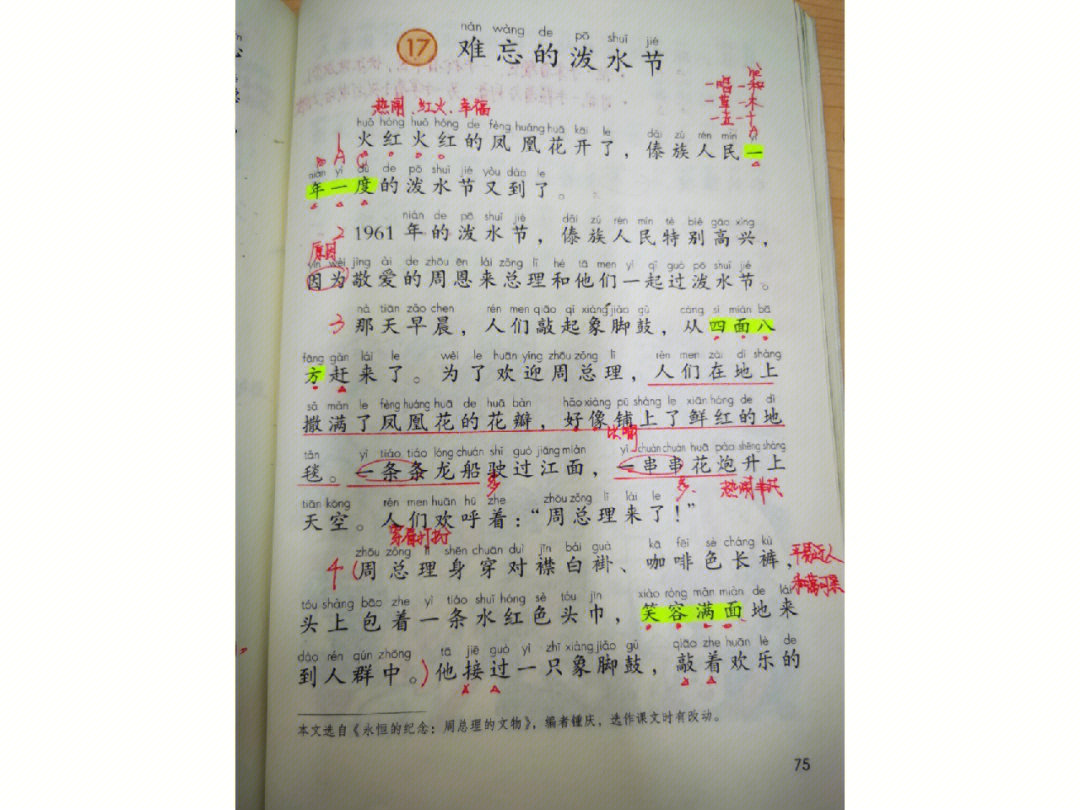 nán wàng de pō shuǐ jié
17 难忘的泼水节
热闹、红火、幸福
一唱一和
一草一木
一五一十
huǒ hóng huǒ hóng de fèng huáng huā kāi le dǎi zú rén mín yì
1 火红火红的凤凰花开了，傣族人民一
nián yí dù de pō shuǐ jié yòu dào le
年一度的泼水节又到了。
nián de pō shuǐ jié dǎi zú rén mín tè bié gāo xìng
2 1961年的泼水节，傣族人民特别高兴，
原因
yīn wèi jìng ài de zhōu ēn lái zǒng lǐ hé tā men yì qǐ guò pō shuǐ jié
因为敬爱的周恩来总理和他们一起过泼水节。
nà tiān zǎo chen rén men qiāo qǐ xiàng jiǎo gǔ cóng sì miàn bā
3 那天早晨，人们敲起象脚鼓，从四面八
fāng gǎn lái le wèi le huān yíng zhōu zǒng lǐ rén men zài dì shàng
方赶来了。为了欢迎周总理，人们在地上
sǎ mǎn le fèng huáng huā de huā bàn hǎo xiàng pū shàng le xiān hóng de dì
撒满了凤凰花的花瓣，好像铺上了鲜红的地
比喻
tǎn yì tiáo tiáo lóng chuán shǐ guò jiāng miàn yí chuàn chuàn huā pào shēng shàng
毯。一条条龙船驶过江面，一串串花炮升上
多 多 热闹非凡
tiān kōng rén men huān hū zhe zhōu zǒng lǐ lái le
天空。人们欢呼着：“周总理来了！”
穿着打扮
zhōu zǒng lǐ shēn chuān duì jīn bái guà kā fēi sè cháng kù
4 (周总理身穿对襟白褂、咖啡色长裤，
平易近人
和蔼可亲
tóu shàng bāo zhe yì tiáo shuǐ hóng sè tóu jīn xiào róng mǎn miàn de lái
头上包着一条水红色头巾，笑容满面地来
dào rén qún zhōng tā jiē guò yì zhī xiàng jiǎo gǔ qiāo zhe huān lè de
到人群中。)他接过一只象脚鼓，敲着欢乐的
本文选自《永恒的纪念：周总理的文物》，编者锺庆，选作课文时有改动。
75